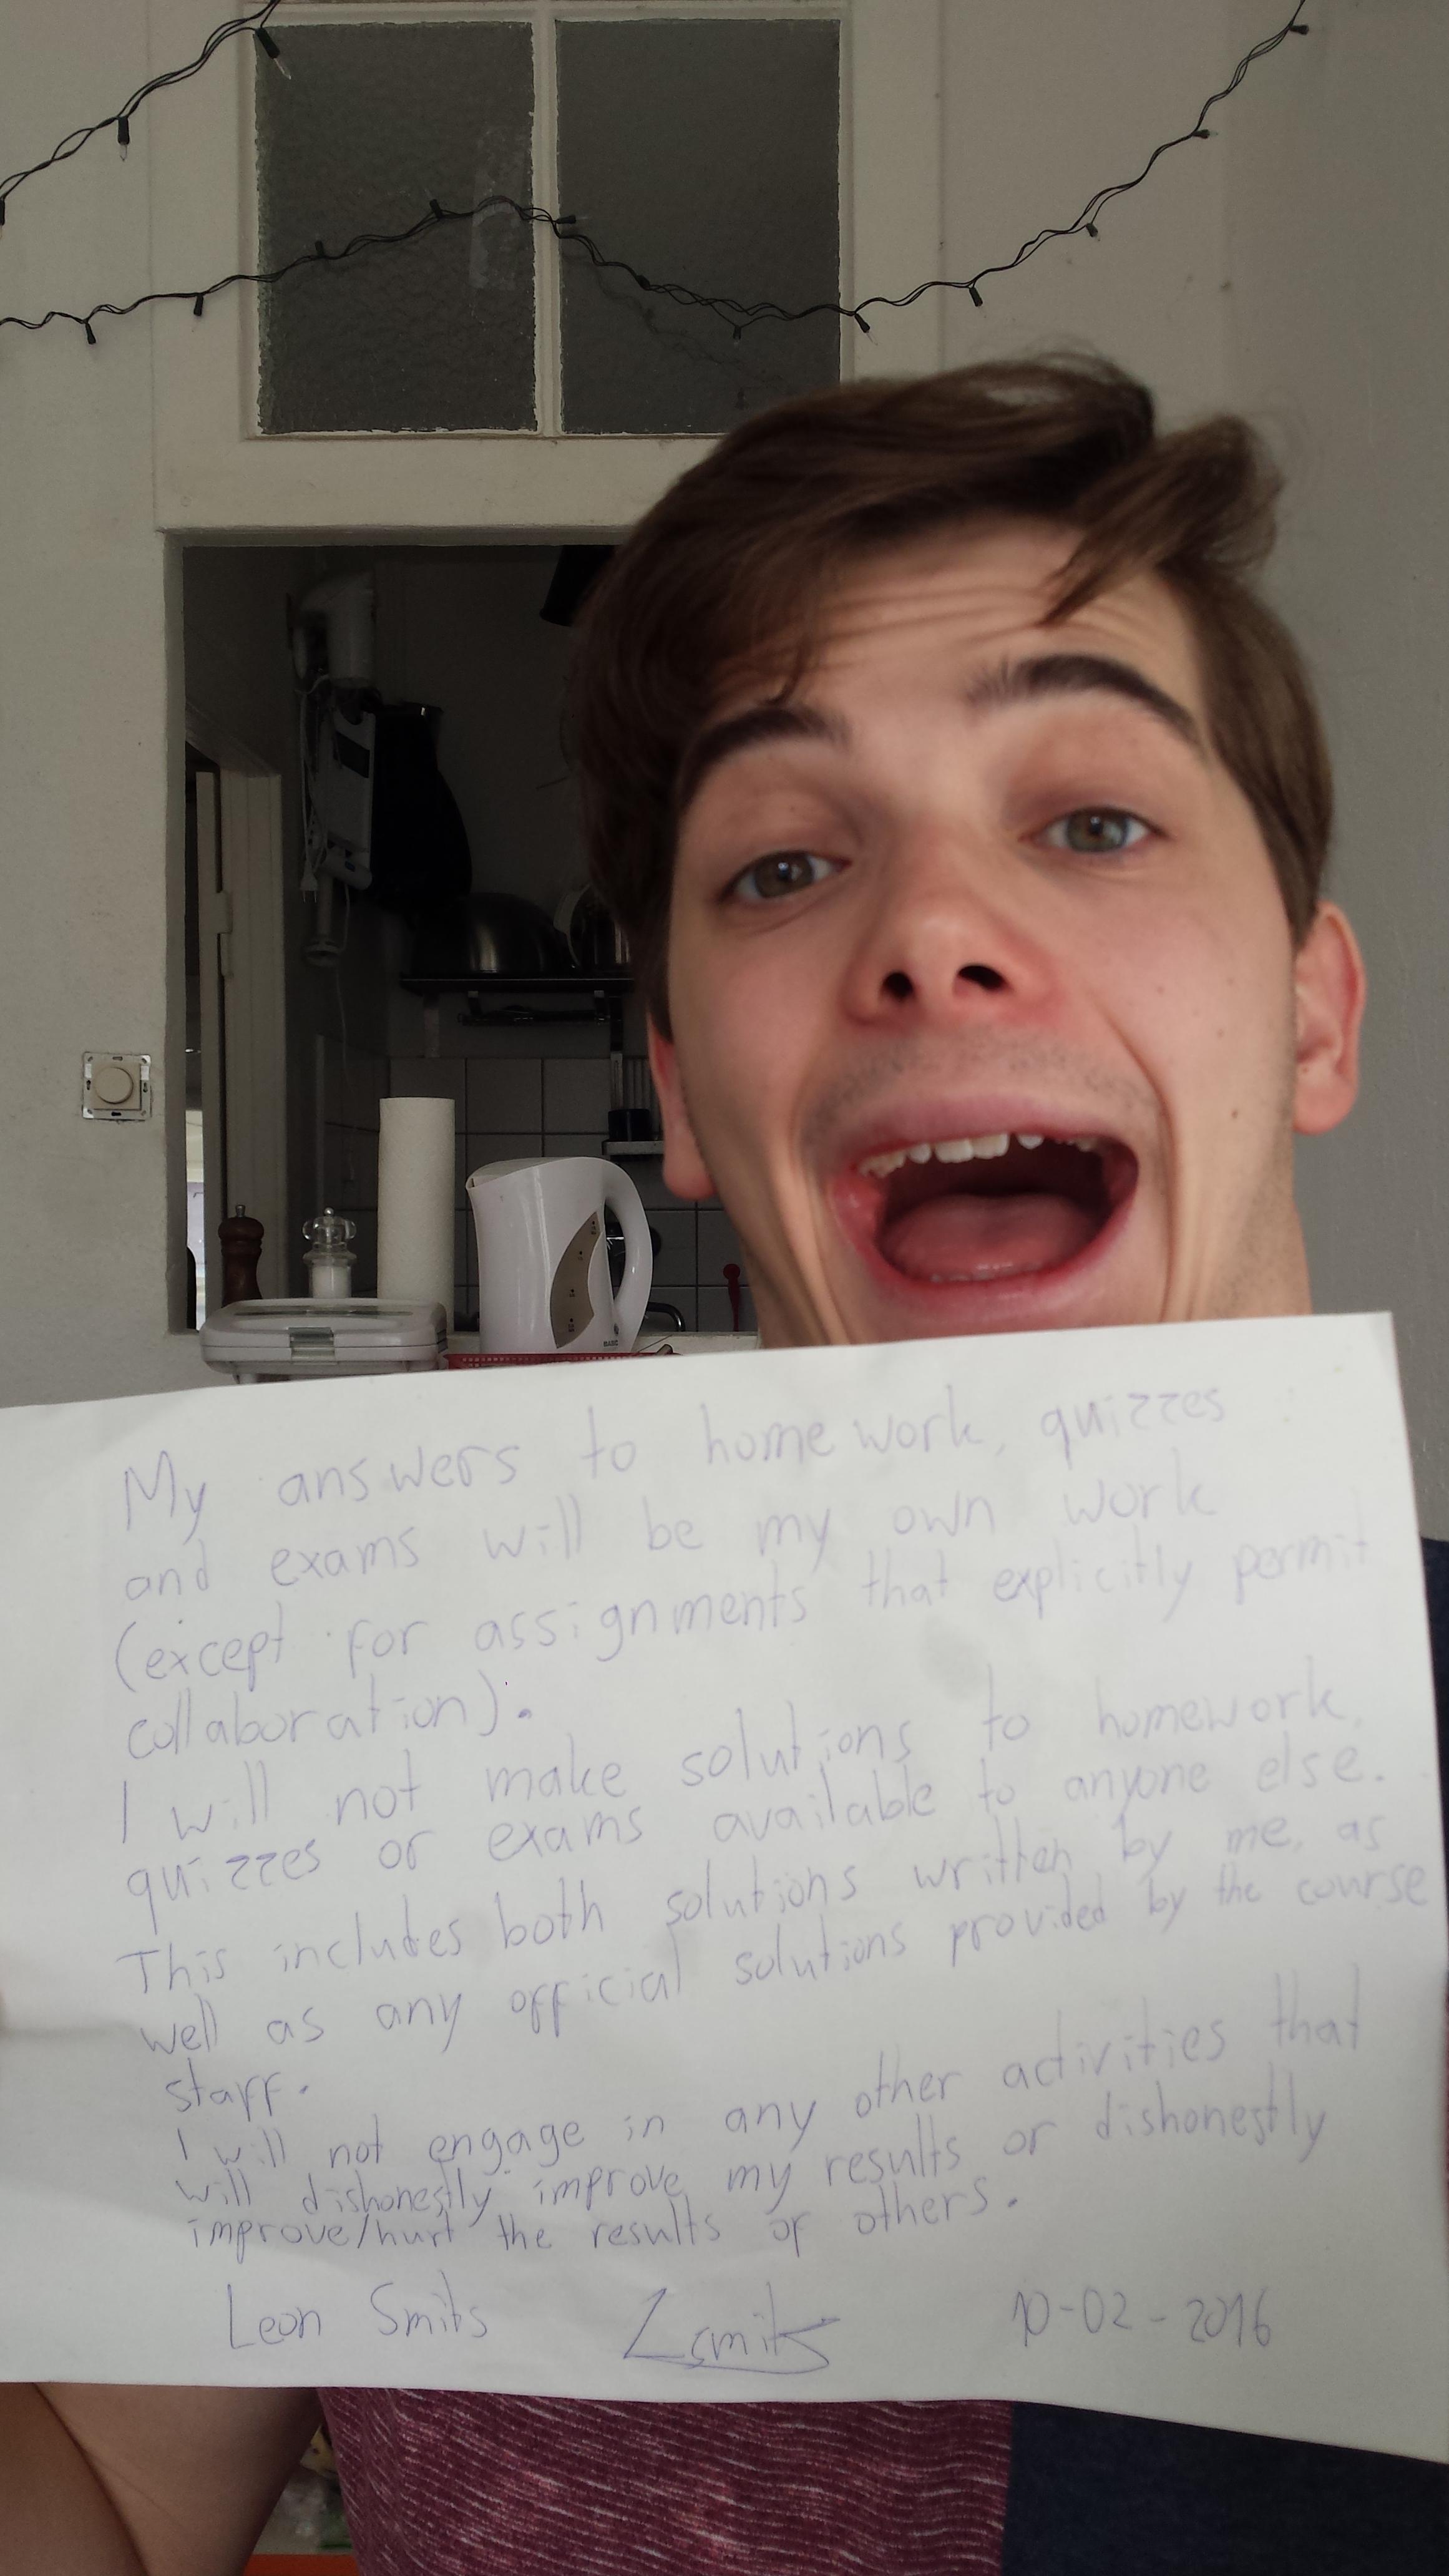 My answers to homework, quizzes
and exams will be my own work
(except for assignments that explicitly permit
collaboration).
I will not make solutions to homework,
quizzes or exams available to anyone else.
This includes both solutions written by me, as
well as any official solutions provided by the course
staff.
I will not engage in any other activities that
will dishonestly improve my results or dishonestly
improve/hurt the results of others.
Leon Smits LSmits 10-02-2016